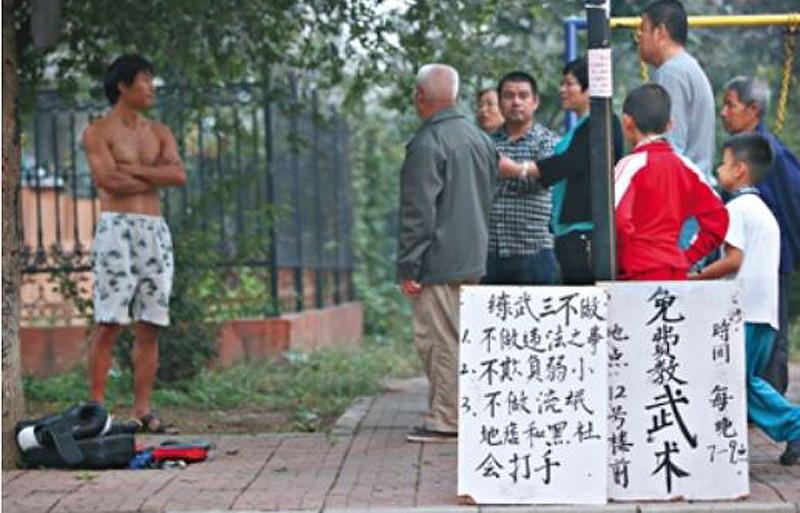 练武三不做
1. 不做违法之事
2. 不欺负弱小
3. 不做流氓
地痞和黑社
会打手
免费教武术
时间 每晚
7-9点
地点 12号楼前